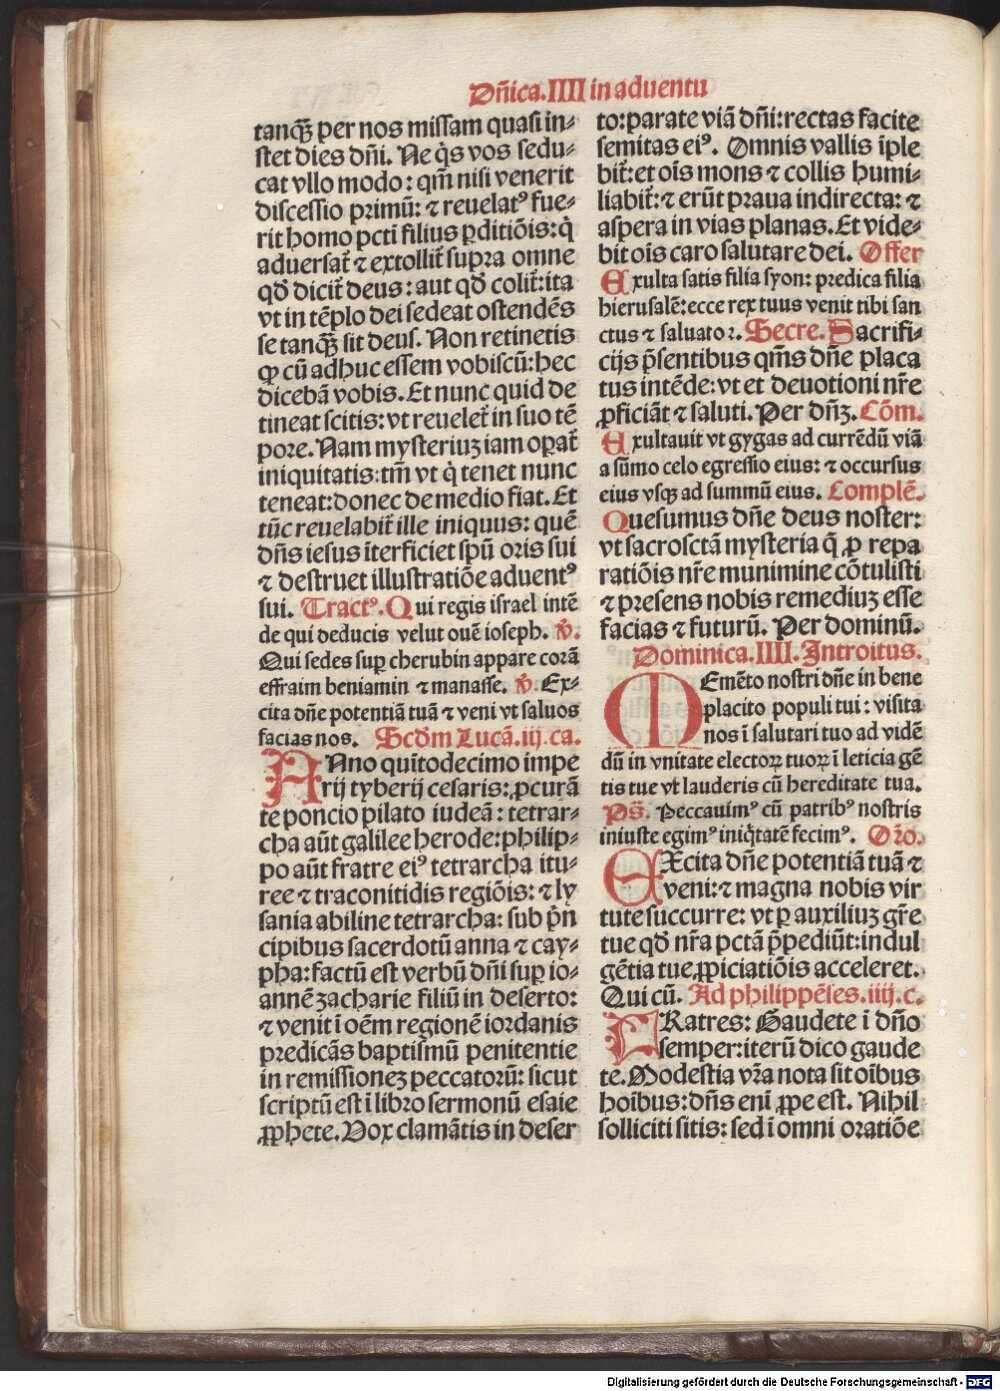 Dn̄ica.IIII in aduentu
tanqȝ per nos missam quasi in⸗
stet dies dn̄i. Ne q̇s vos sedu⸗
cat vllo modo: qm̄ nisi venerit
discessio primū: ⁊ reuelatꝰ fue⸗
rit homo pcti filius ꝑditiōis: q̇
aduersat̄ ⁊ extollit̄ supra omne
qd̄ dicit̄ deus: aut qd̄ colit̄: ita
vt in tēplo dei sedeat ostendēs
se tanqȝ sit deus. Non retinetis
ꝙ cū adhuc essem vobiscū: hec
dicebā vobis. Et nunc quid de
tineat scitis: vt reuelet̄ in suo tē
pore. Nam mysteriuȝ iam oꝑat̄
iniquitatis: tm̄ vt q̇ tenet nunc
teneat: donec de medio fiat. Et
tūc reuelabit̄ ille iniquus: quē
dn̄s iesus īterficiet spū oris sui
⁊ destruet illustratiōe aduentꝰ
sui. Tractꝰ. Qui regis israel intē
de qui deducis velut ouē ioseph. ℣.
Qui sedes suꝑ cherubin appare corā
effraim beniamin ⁊ manasse. ℣. Ex⸗
cita dn̄e potentiā tuā ⁊ veni vt saluos
facias nos. Scd̄m Lucā.iij.ca.
ANno quītodecimo impe
rij tyberij cesaris: ꝓcurā
te poncio pilato iudeā: tetrar⸗
cha aūt galilee herode: philip⸗
po aūt fratre eiꝰ tetrarcha itu⸗
ree ⁊ traconitidis regiōis: ⁊ ly
sania abiline tetrarcha: sub p̄n
cipibus sacerdotū anna ⁊ cay⸗
pha: factū est verbū dn̄i suꝑ io⸗
annē zacharie filiū in deserto:
⁊ venit ī oēm regionē iordanis
predicās baptismū penitentie
in remissioneȝ peccatorū: sicut
scriptū est ī libro sermonū esaie
ꝓphete. Vox clamātis in deser
to: parate viā dn̄i: rectas facite
semitas eiꝰ. Omnis vallis īple
bit̄: et oīs mons ⁊ collis humi⸗
liabit̄: ⁊ erūt praua indirecta: ⁊
aspera in vias planas. Et vide⸗
bit oīs caro salutare dei. Offer
Exulta satis filia syon: predica filia
hierusalē: ecce rex tuus venit tibi san
ctus ⁊ saluator. Secre. Sacrifi⸗
cijs p̄sentibus qm̄s dn̄e placa
tus intēde: vt et deuotioni nr̄e
ꝓficiāt ⁊ saluti. Per dn̄ȝ. Cōm.
Exultauit vt gygas ad currēdū viā
a sūmo celo egressio eius: ⁊ occursus
eius vsqȝ ad summū eius. Complē.
Quesumus dn̄e deus noster:
vt sacrosctā mysteria q̄ ꝓ repa
ratiōis nr̄e munimine cōtulisti
⁊ presens nobis remediuȝ esse
facias ⁊ futurū. Per dominū.
Dominica.IIII. Introitus.
MEmēto nostri dn̄e in bene
placito populi tui: visita
nos ī salutari tuo ad vidē
dū in vnitate electoꝝ tuoꝝ ī leticia gē
tis tue vt lauderis cū hereditate tua.
Ps̄. Peccauimꝰ cū patribꝰ nostris
iniuste egimꝰ iniq̇tatē fecimꝰ. Oro.
EXcita dn̄e potentiā tuā ⁊
veni: ⁊ magna nobis vir
tute succurre: vt ꝑ auxiliuȝ gr̄e
tue qd̄ nr̄a pctā p̄pediūt: indul
gētia tue ꝓpiciatiōis acceleret.
Qui cū. Ad philippēses.iiij.c.
FRatres: Gaudete ī dn̄o
semper: iterū dico gaude
te. Modestia vr̄a nota sit oībus
hoībus: dn̄s enī ꝓpe est. Nihil
solliciti sitis: sed ī omni oratiōe
Digitalisierung gefördert durch die Deutsche Forschungsgemeinschaft - DFG